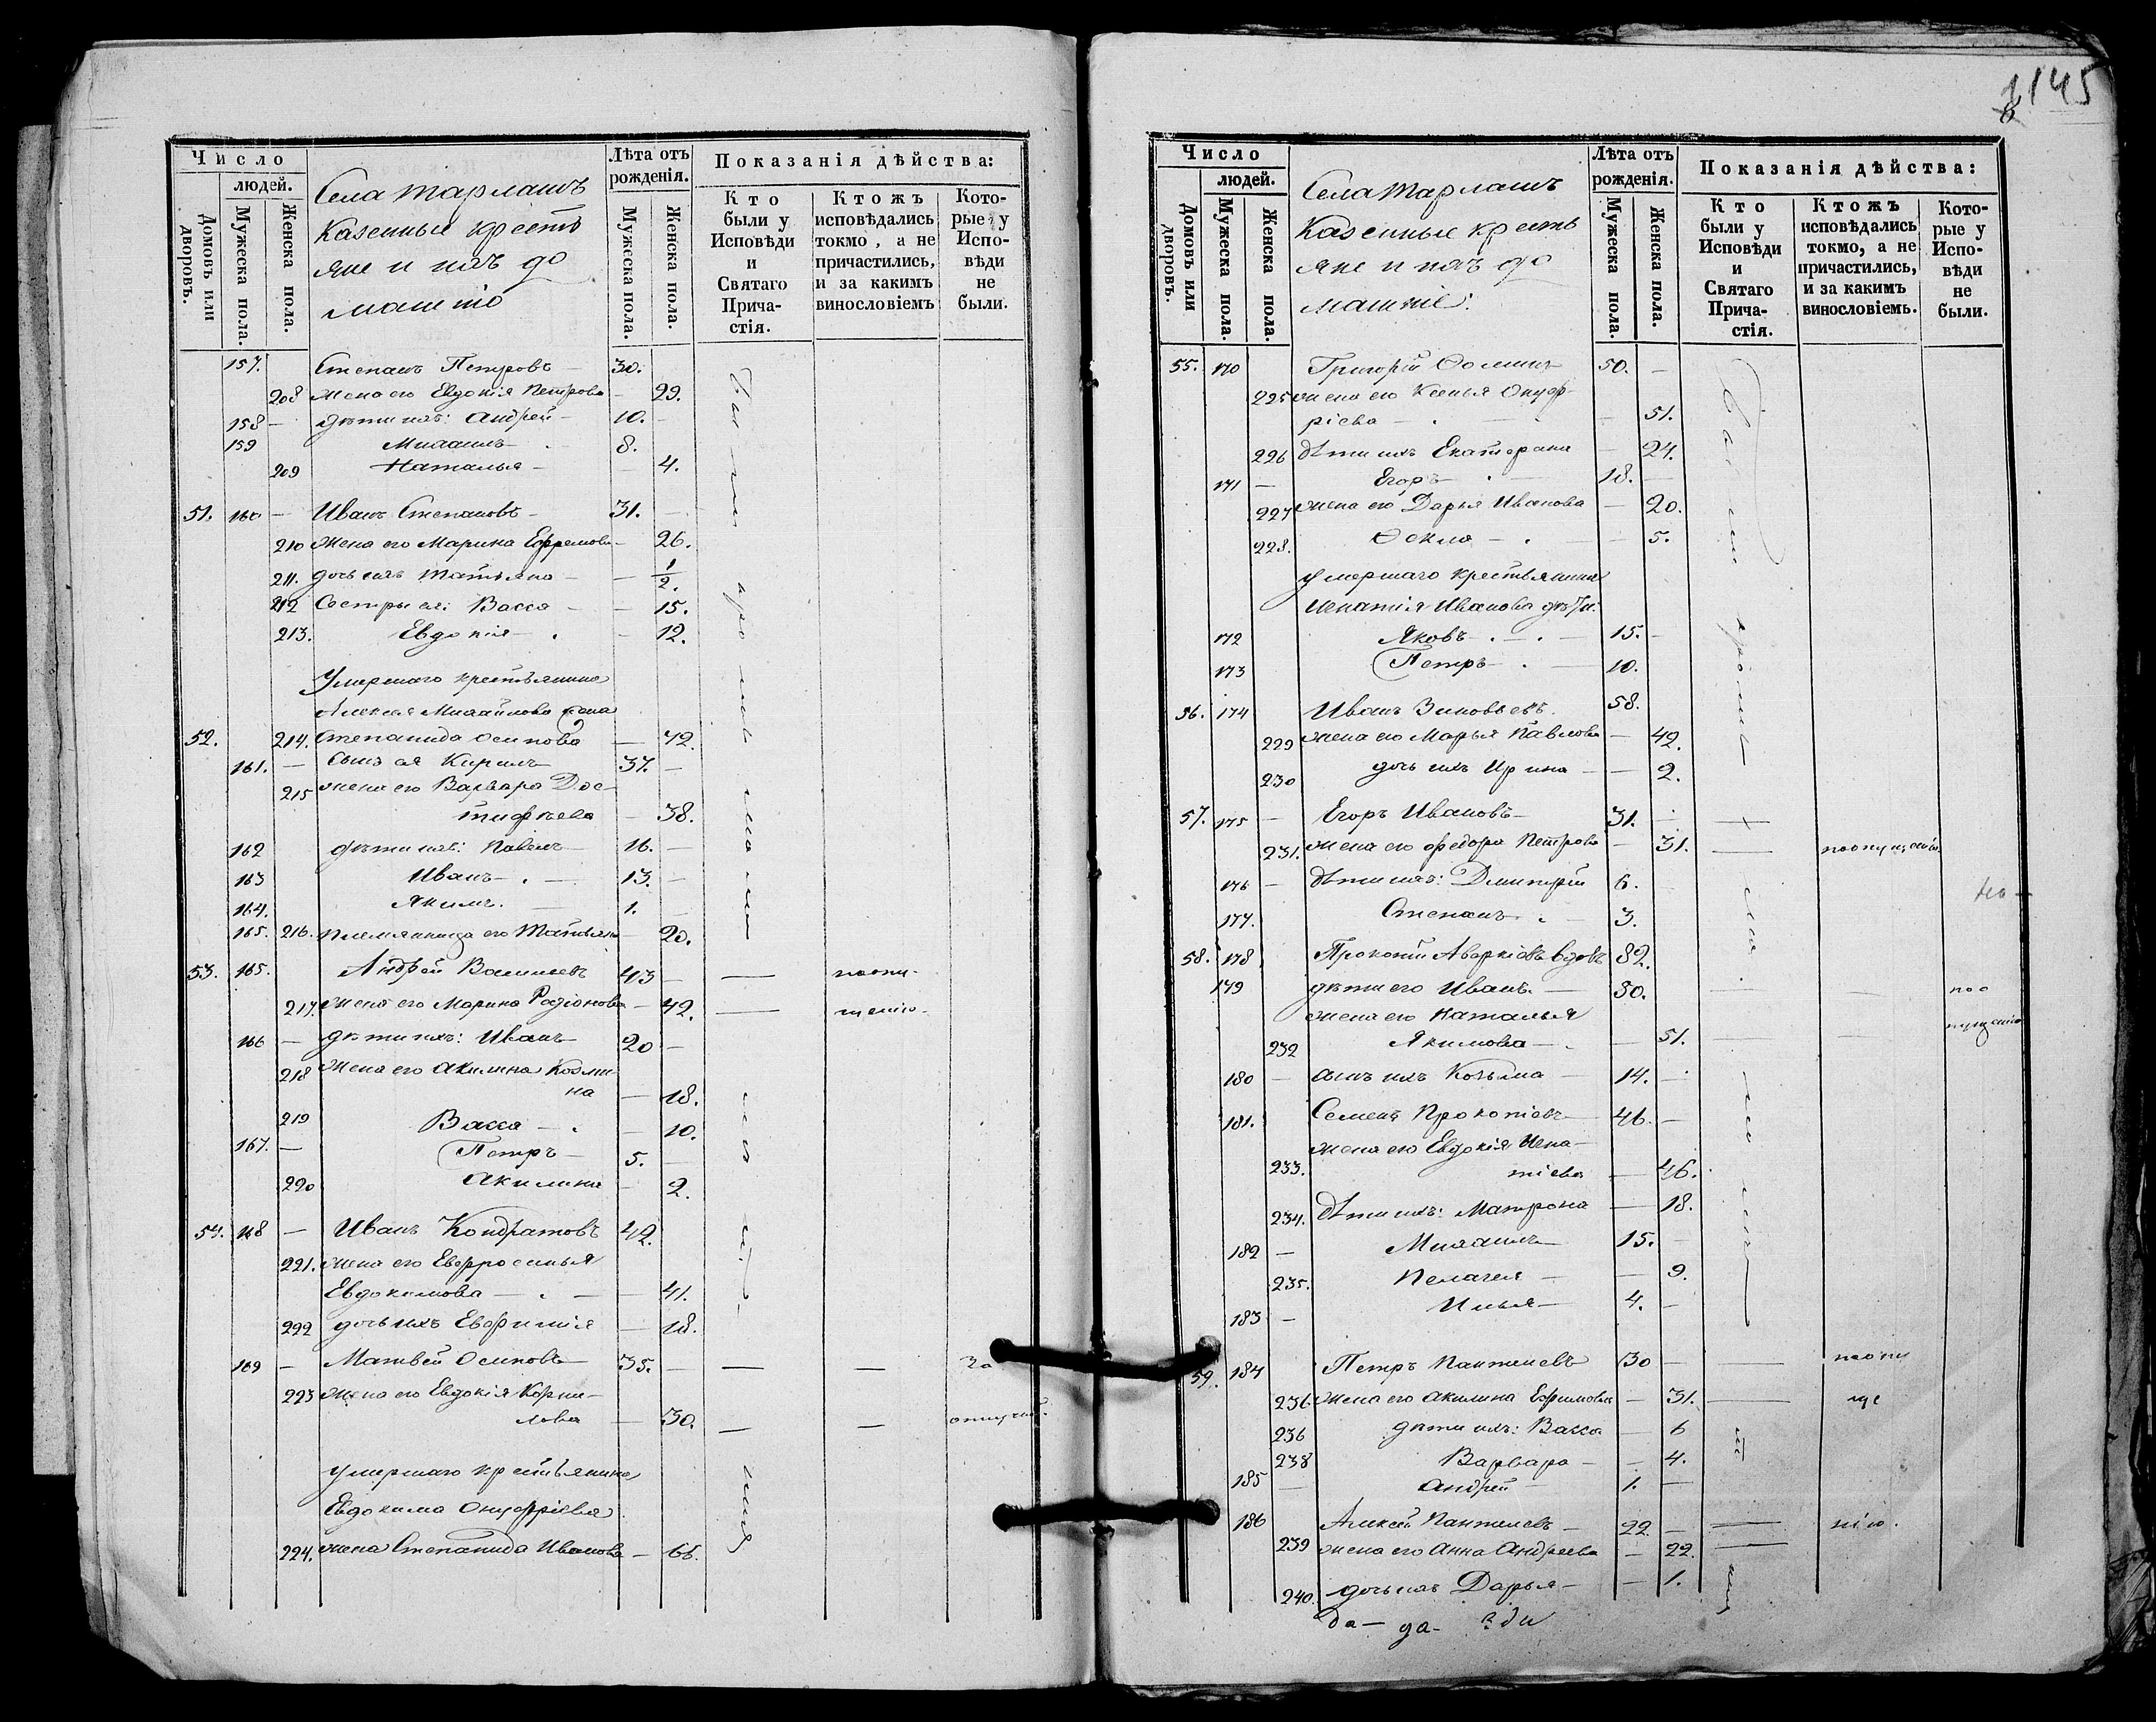 145
Число
Лѣта отъ рожденія.
Показанія дѣйства:
людей.
Домовъ или дворовъ.
Мужеска пола.
Женска пола.
Села Тарлашъ
Казенные кресть
яне и ихъ до
машніе
Мужеска пола.
Женска пола.
Кто были у Исповѣди и Святаго Причастія.
Ктожъ исповѣдались токмо, а не причастились, и за какимъ винословіемъ
Которые у Исповѣди не были.
157. Степанъ Петровъ 30.
208 жена его Евдокія Петрова 29.
158 дѣти ихъ: Андрей 10.
159 Михаилъ 8.
209 Наталья 4.
51. 160 Иванъ Степановъ 31.
210 Жена его Марина Ефремова 26.
211. дочь ихъ Татьяна 1/2.
212 Сестры ея: Васса 15.
213. Евдокія 12.
Умершаго крестьянина
Алексея Михайлова жена
52. 214. Степанида Осипова 72.
161. Сынъ ея Кирилъ 37.
215 жена его Варвара Дос-
тифѣева 38.
162 дѣти ихъ: Павелъ 16.
163 Иванъ 13.
164. Якимъ. 1.
165. 216. племянница его Татьяна 20.
53. 165. Андрей Васильевъ 43 по опу-
217. жена его Марина Родіонова 42. щенію.
166 дѣти ихъ: Иванъ 20
218 жена его Акилина Козми
на 18.
219 Васса 10.
167. Петръ 5.
220 Акилина 2.
54. 168 Иванъ Кондратовъ 42.
221. жена его Евфросинья
Евдокимова 41.
222 дочь ихъ Евфимія 18.
169 Матвей Осиповъ 35. За
223 жена его Евдокія Корни-
лова 30.
умершаго крестьянина
Евдокима Онуфріева
224. жена Степанида Иванова 65.
Число
Лѣта отъ рожденія.
Показанія дѣйства:
людей.
Домовъ или дворовъ.
Мужеска пола.
Женска пола.
Села Тарлашъ
Казенные кресть
яне и ихъ до
машніе:
Мужеска пола.
Женска пола.
Кто были у Исповѣди и Святаго Причастія.
Ктожъ исповѣдались токмо, а не причастились, и за какимъ винословіемъ.
Которые у Исповѣди не были.
55. 170 Григорій Фоминъ 50.
225 жена его Ксенья Онуф-
ріева 51.
226 дѣти ихъ Екатерина 24.
171 Егоръ 18.
227 жена его Дарья Иванова 20.
228. Фекла 5.
умершаго крестьянина
Игнатія Иванова дѣти:
172 Яковъ 15.
173 Петръ 10.
56. 174 Иванъ Зиновьевъ. 58.
229 жена его Марья Павлова 42.
230 дочь ихъ Ирина 2.
57. 175 Егоръ Ивановъ 31.
231. жена его Федора Петрова 31. по опущенію.
176 дѣти ихъ: Дмитрій 6.
177. Степанъ 3.
58. 178 Прокопій Аверкіевъ вдовъ 82.
179 дѣти его Иванъ. 50. по о
жена его Наталья пущенію
232 Якимова 51.
180 сынъ ихъ Козьма 14.
181. Семенъ Прокопіевъ 46.
жена его Евдокія Игна-
233. тіева 46.
234. дѣти ихъ: Матрона 18.
182 Михаилъ 15.
235. Пелагея 9.
183 Илья 4.
59. 184 Петръ Пантилевъ 30 по опу
236 жена его Акилина Ефимова 31. ще
236 дѣти ихъ: Васса 6
238 Варвара 4.
185 Андрей 1.
186 Алексѣй Пантилевъ 22 нію.
239 жена его Анна Андреева 22.
240. дочь ихъ Дарья 1.